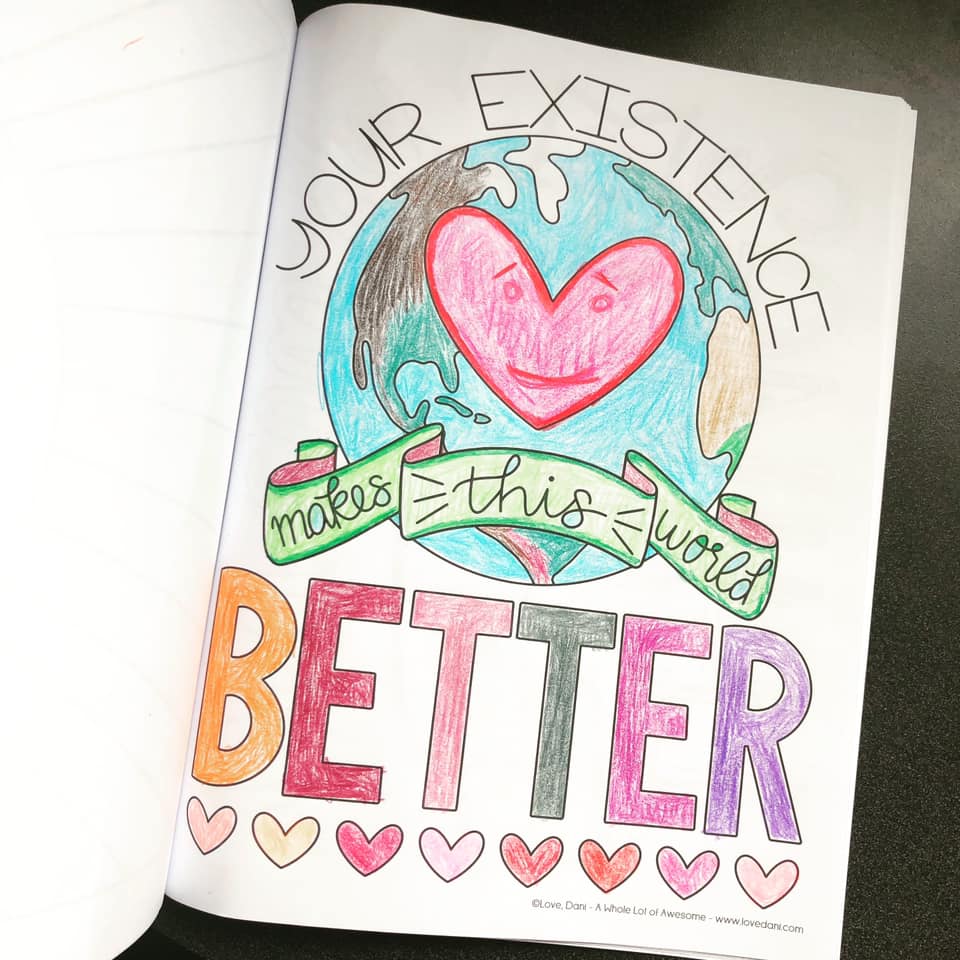 YOUR EXISTENCE
makes this world
BETTER
©Love, Dani - A Whole Lot of Awesome - www.lovedani.com